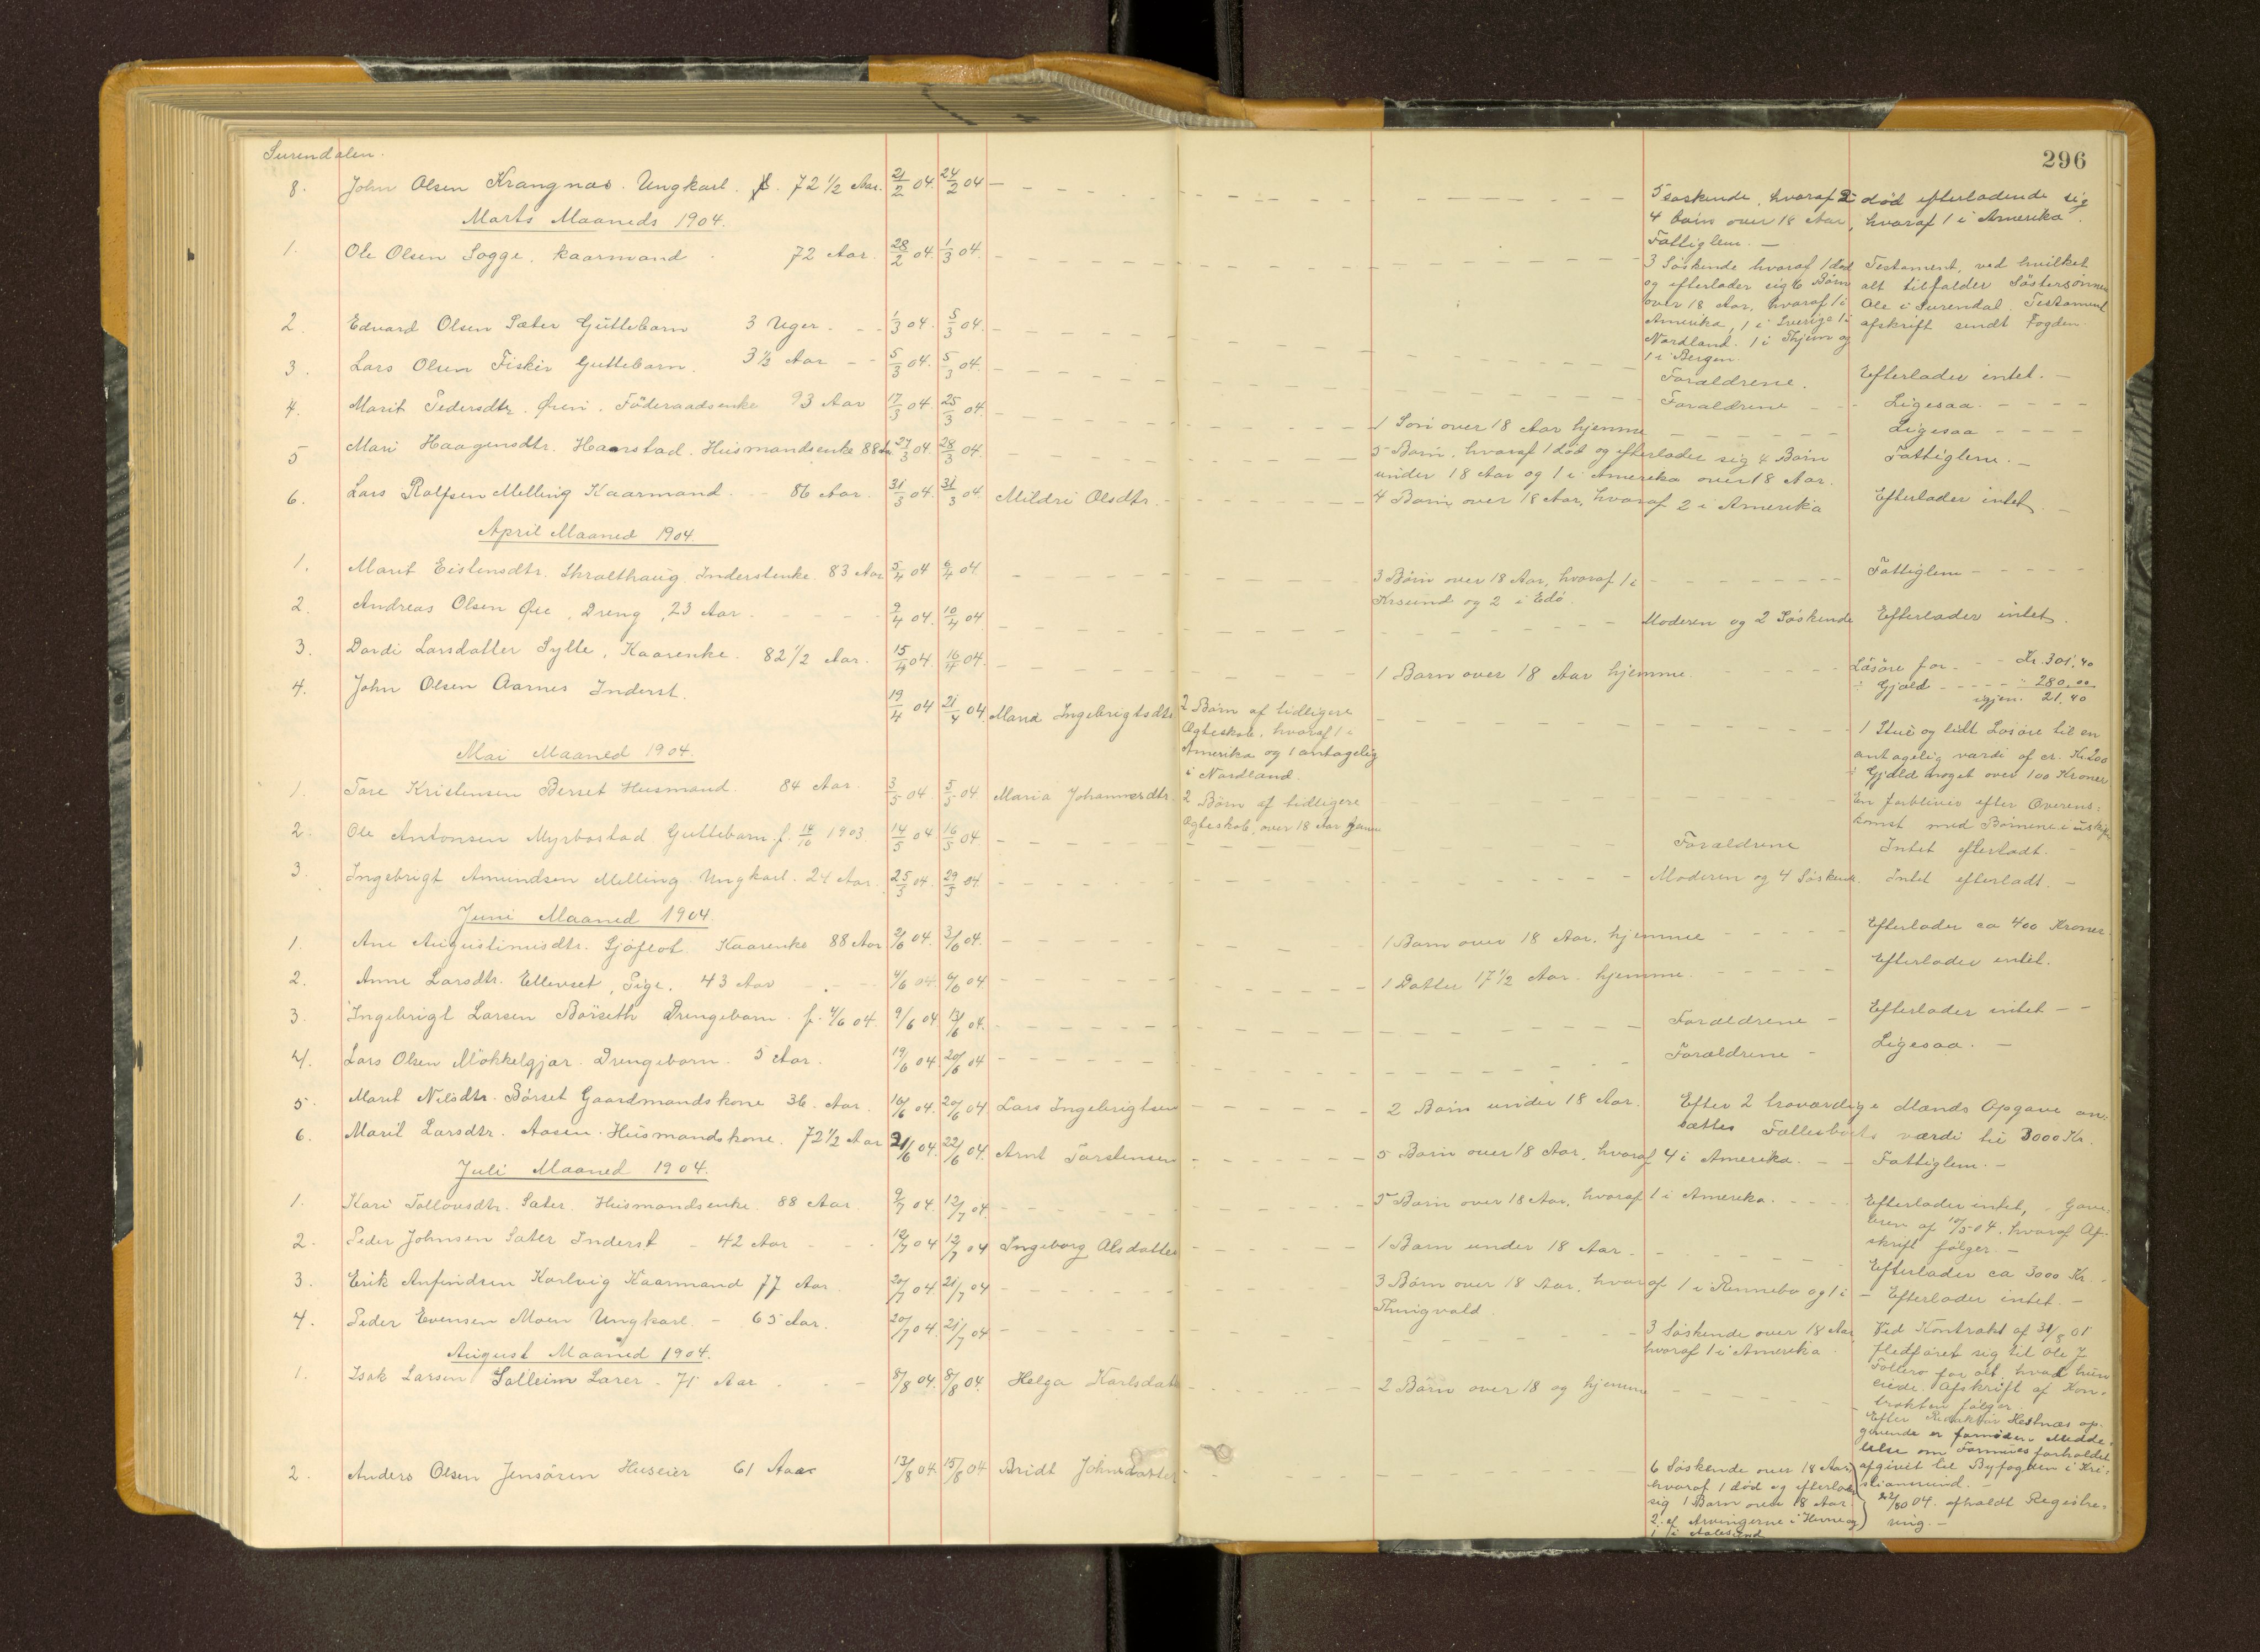 296
Surendalen.
8. John Olsen Krangnæs. Ungkarl. 72 1/2 Aar. 21/2 04. 24/2 04 5 søskende, hvoraf 2 død efterladende sig
4 børn over 18 Aar, hvoraf 1 i Amerika.
Fattiglem. —
Marts Maaneds 1904.
1. Ole Olsen Sogge, kaarmand 72 Aar. 28/2 04. 1/3 04. 3 Söskende hvoraf 1 död Testament, ved hvilket
og efterlader sig 6 Børn alt tilfalder Söstersönnen
over 18 Aar, hvoraf 1 i Ole i Surendal. Testament
Amerika, 1 i Sverige 1 i afskrift sendt Fogden.
Nordland. 1 i Thjem og
1 i Bergen.
2. Edvard Olsen Sæter Guttebarn 3 Uger. 1/3 04. 5/3 04. Forældrene. Efterlader intet. —
3. Lars Olsen Fiskei Guttebarn. 3 1/2 Aar 5/3 04. 5/3 04. Forældrene Ligesaa.
4. Marit Pedersdtr. Øren. Föderaadsenke 93 Aar 17/3 04. 25/3 04. 1 Søn over 18 Aar hjemme Ligesaa
5 Mari Haagensdtr. Haarstad. Husmandsenke 88 Aar 27/3 04. 28/3 04. 5 Børn, hvoraf 1 död og efterlader sig 4 Børn Fattiglem. —
under 18 Aar og 1 i Amerika over 18 Aar.
6. Lars Rolfsen Melling Kaarmand. 86 Aar. 31/3 04. 31/3 04. Mildri Olsdtr. 4 Børn over 18 Aar, hvoraf 2 i Amerika Efterlader intet
April Maaned 1904.
1. Marit Eistensdtr. Skralthaug Inderstenke. 83 Aar 5/4 04 6/4 04 3 Børn over 18 Aar, hvoraf 1 i Fattiglem
Krsund og 2 i Edö.
2. Andreas Olsen Øie, Dreng, 23 Aar 9/4 04. 10/4 04 Moderen og 2 Söskende Efterlader intet.
3. Dordi Larsdatter Sylte, Kaarenke. 82 1/2 Aar. 15/4 04. 16/4 04. 1 Barn over 18 Aar hjemme. Lösöre for Kr. 301,40
÷ Gjæld 280,00
igjen. 21,40
4. John Olsen Aarnes Inderst. 19/4 04 21/4 04. Mana Ingebrigtsdtr. 2 Børn af tidligere
Ægteskab, hvoraf 1 i
Amerika og 1 antagelig
i Nordland.
1 Stue og lidt Lösöre til en
antagelig værdi af cr. Kr. 200
÷ Gjæld noget over 100 Kroner
Mai Maaned 1904.
1. Tore Kristensen Berset Husmand. 84 Aar. 3/5 04. 5/5 04. Maria Johannesdtr. 2 Børn af tidligere
Ægteskab, over 18 Aar
En forbliver efter Overens=
komst med Børnene i uskiftet
2. Ole Antonsen Myrbostad Guttebarn. f. 14/10 1903 14/5 04 16/5 04. Forældrene Intet efterladt.
3. Ingebrigt Amundsen Melling Ungkarl. 24 Aar. 25/5 04. 29/5 04. Moderen og 4 Söskende. Intet efterladt. —
Juni Maaned 1904.
1. Ane Augustinusdtr. Sjøflot. Kaarenke 88 Aar 2/6 04. 3/6 04. 1 Barn over 18 Aar. hjemme Efterlader ca 400 Kroner.
2. Anne Larsdtr. Ellevset, Pige. 43 Aar 4/6 04. 6/6 04 1 Datter 17 1/2 Aar. hjemme. Efterlader intet.
3. Ingebrigt Larsen Börseth Drengebarn. f. 4/6 04. 9/6 04 13/6 04. Forældrene Efterlader intet
4. Lars Olsen Mökkelgjær. Drengebarn. 5 Aar. 19/6 04. 20/6 04 Forældrene Ligesaa. —
5. Marit Nilsdtr. Börset Gaardmandskone 36. Aar. 16/6 04. 20/6 04 Lars Ingebrigtsen 2 Børn under 18 Aar. Efter 2 troværdige Mands Opgave an=
sættes Fællesboets værdi til 3000 Kr.
6. Marit Larsdtr. Aasen. Husmandskone. 72 1/2 Aar 21/6 04. 22/6 04. Arnt Torstensen 5 Børn over 18 Aar, hvoraf 4 i Amerika. Fattiglem. —
Juli Maaned 1904.
1. Kari Tollovsdtr. Sæter. Husmandsenke. 88 Aar. 9/7 04. 12/7 04. 5 Børn over 18 Aar, hvoraf 1 i Amerika. Efterlader intet, Gave=
brev af 10/5 04. hvoraf Af=
skrift fölger. —
2. Peder Johnsen Sæter Inderst 42 Aar 12/7 04 12/7 04 Ingeborg Olsdatter 1 Barn under 18 Aar. Efterlader ca 3000 Kr.
3. Erik Anfindsen Karlvig Kaarmand 77 Aar. 20/7 04. 21/7 04 3 Børn over 18 Aar, hvoraf 1 i Rennebo og 1 i Efterlader intet. —
Thingvald.
4. Peder Evensen Moen Ungkarl. 65 Aar. 20/7 04. 21/7 04 3 Söskende over 18 Aar Ved Kontrakt af 31/8 01
hvoraf 1 i Amerika. fledföret sig til Ole J
for alt, hvad hun
eiede. Afskrift af Kon=
trakten fölger.
August Maaned 1904.
1. Isak Larsen Solleim Lærer. 71 Aar 8/8 04. 8/8 04. Helga Karlsdatter 2 Børn over 18 og hjemme
Efter Hestnæs op=
givende er fornöden Medde=
lelse om Formuesforholdet
afgivet til Byfogden i Kri=
stiansund. —
2. Anders Olsen Jensören Huseier 61 Aar 13/8 04. 15/8 04 Bridt Johnsdatter 6 Söskende over 18 Aar,
hvoraf 1 död og efterlader
sig 1 Barn over 18 Aar.
2 af Arvingerne i Hevne og
1 i Aalesund
04. afholdt Registre=
ring. —